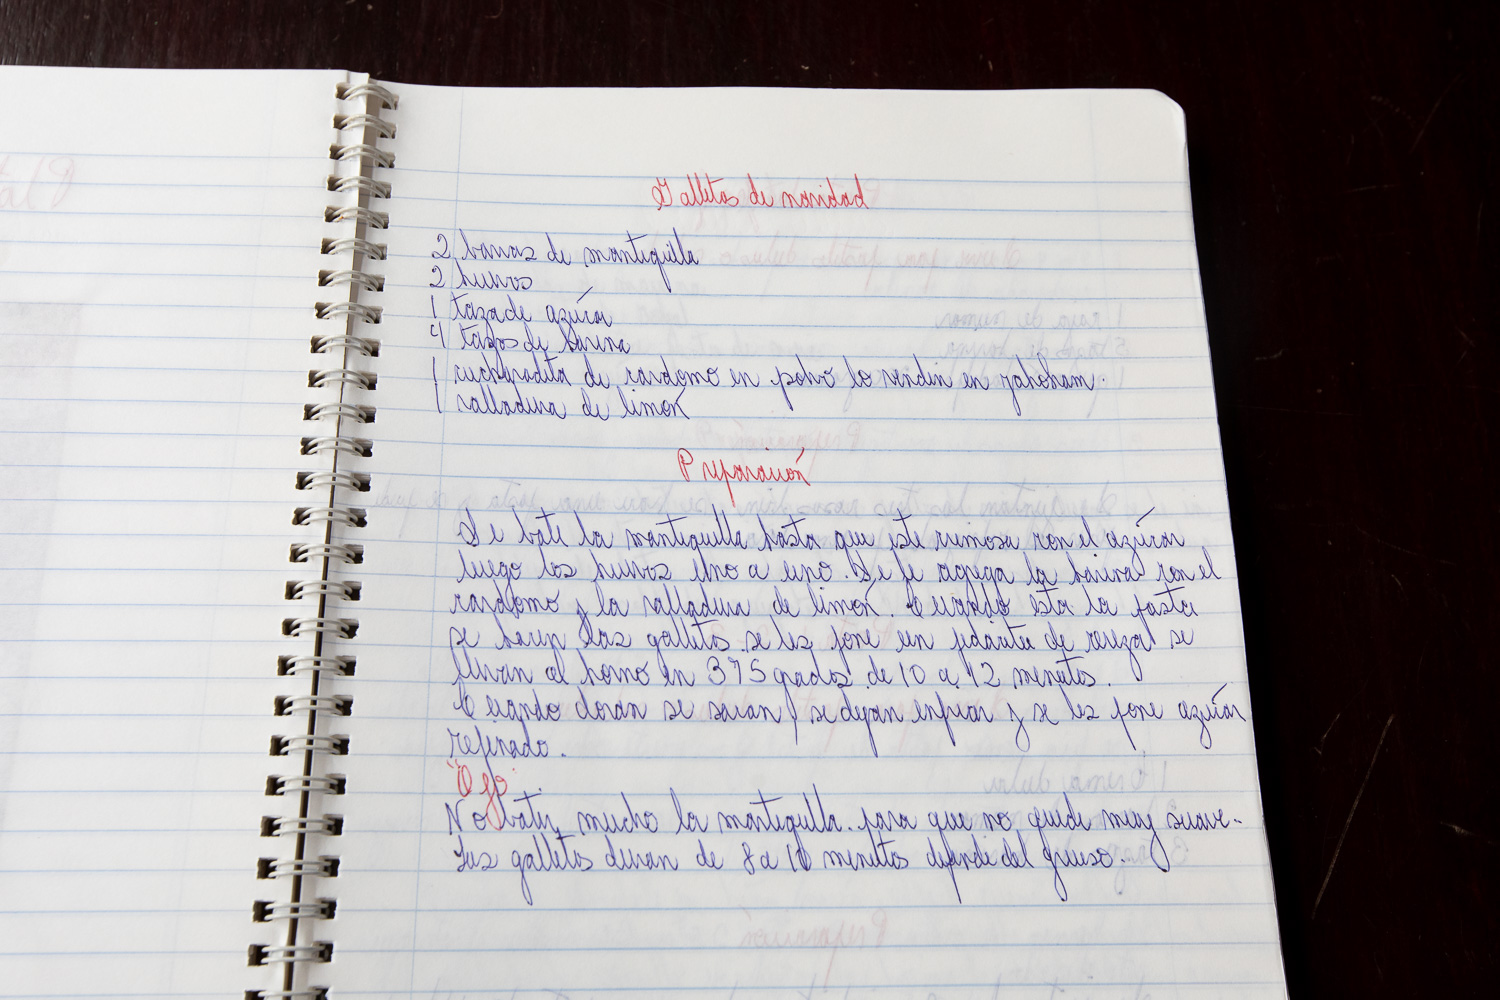 Galletas de navidad
2 barras de mantequilla
2 huevos
1 taza de azúcar
4 tazas de harina
1 cucharadita de cardomo en polvo lo venden en
1 ralladura de limón
Preparación
Se bate la mantequilla hasta que este cremosa con el azúcar
luego los huevos uno a uno. Se le agrega la harina con el
cardomo y la ralladura de limón. Cuando esta la pasta
se hacen las galletas se les pone un pedacito de cereza se
llevan al horno en 375 grados de 10 a 12 minutos.
Cuando doran se sacan, se dejan enfriar y se les pone azúcar
refinado.
"Ojo"
No batir mucho la mantequilla para que no quede muy suave.
Las galletas duran de 8 a 10 minutos depende del grueso.